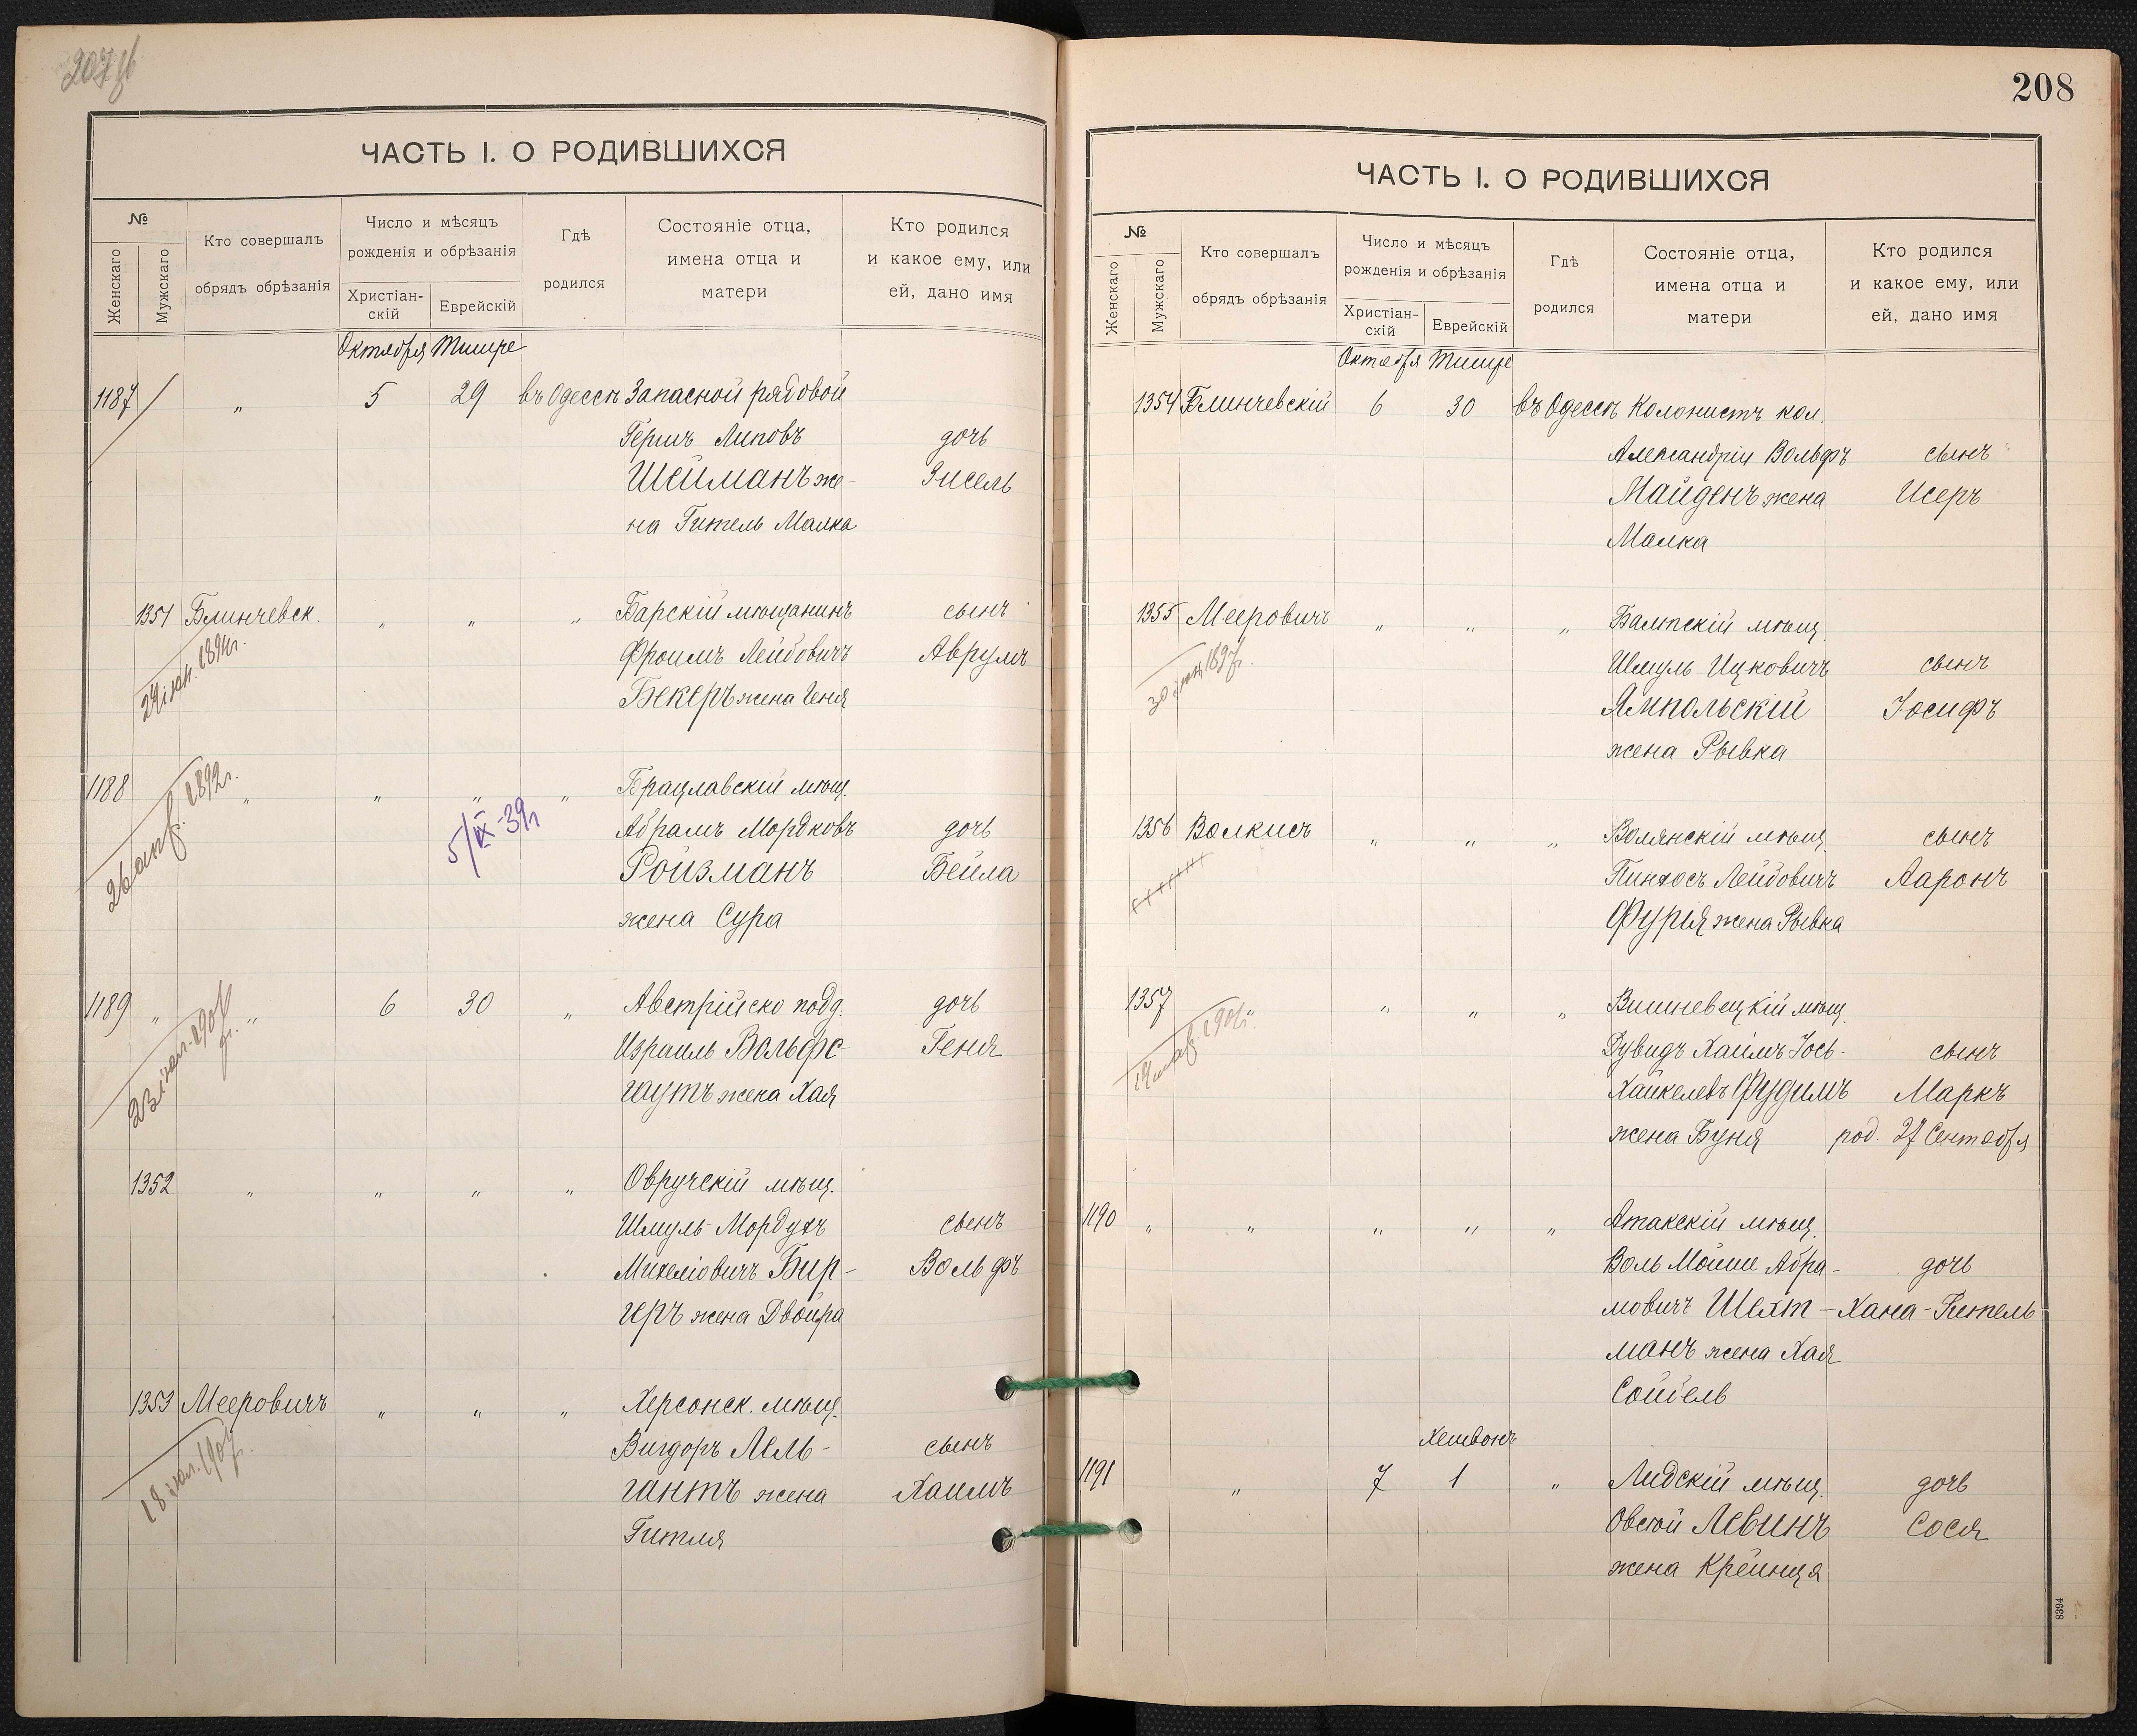 ЧАСТЬ I. О РОДИВШИХСЯ
№
Женскаго
Мужскаго
Кто совершалъ
обрядъ обрѣзанія
Число и мѣсяцъ
рожденія и обрѣзанія
Христіан-
скій
Еврейскій
Гдѣ
родился
Состояніе отца,
имена отца и
матери
Кто родился
и какое ему, или
ей, дано имя
Октября Тишре
1187 " 5 29 въ Одессѣ Запасной рядовой
Гершъ Липовъ дочь
Шейманъ же- Зисель
на Гитель Малка
1351 Блинчевск. " " " Барскій мѣщанинъ сынъ
Фроимъ Лейбовичъ Аврумъ
Бекеръ жена Геня
1188 " " " " Брацлавскій мѣщ.
26 1892г.
5/IX-39г
Абрамъ Мордковъ дочь
Ройзманъ Бейла
жена Сура
1189 " " 6 30 " Австрійско подд. дочь
Израиль Вольфс- Геня
гаутъ жена Хая
1352 " " " " Овручскій мѣщ.
Шмуль Мордухъ сынъ
Михеліовичъ Бир- Вольфъ
геръ жена Двойра
1353 Мееровичъ " " " Херсонск. мѣщ.
Вигдоръ Лель- сынъ
гантъ жена Хаимъ
Гитля
208
ЧАСТЬ I. О РОДИВШИХСЯ
№
Женскаго
Мужскаго
Кто совершалъ
обрядъ обрѣзанія
Число и мѣсяцъ
рожденія и обрѣзанія
Христіан-
скій
Еврейскій
Гдѣ
родился
Состояніе отца,
имена отца и
матери
Кто родился
и какое ему, или
ей, дано имя
Октября Тишре
1354 Блинчевскій 6 30 въ Одессѣ Колонистъ кол.
Александріи Вольфъ сынъ
Майденъ жена Исеръ
Малка
1355 Мееровичъ " " " Балтскій мѣщ.
Шмуль Ицковичъ сынъ
Ямпольскій Іосифъ
жена Рывка
1356 Волкисъ " " " Волянскій мѣщ. сынъ
Пинхосъ Лейбовичъ Ааронъ
Фурія жена Рывка
1357 " " " " Вишневецкій мѣщ.
Дувидъ Хаимъ Іось- сынъ
Хайкелевъ Фудимъ Маркъ
жена Буня род. 27 Сентября
1190 " " " " " Атакскій мѣщ.
Воль Мойше Абра- дочь
мовичъ Шехт- Хана-Гитель
манъ жена Хая
Сойбель
Хешвонъ
1191 " 7 1 " Лидскій мѣщ. дочь
Овсей Левинъ Сося
жена Крейнця
8394